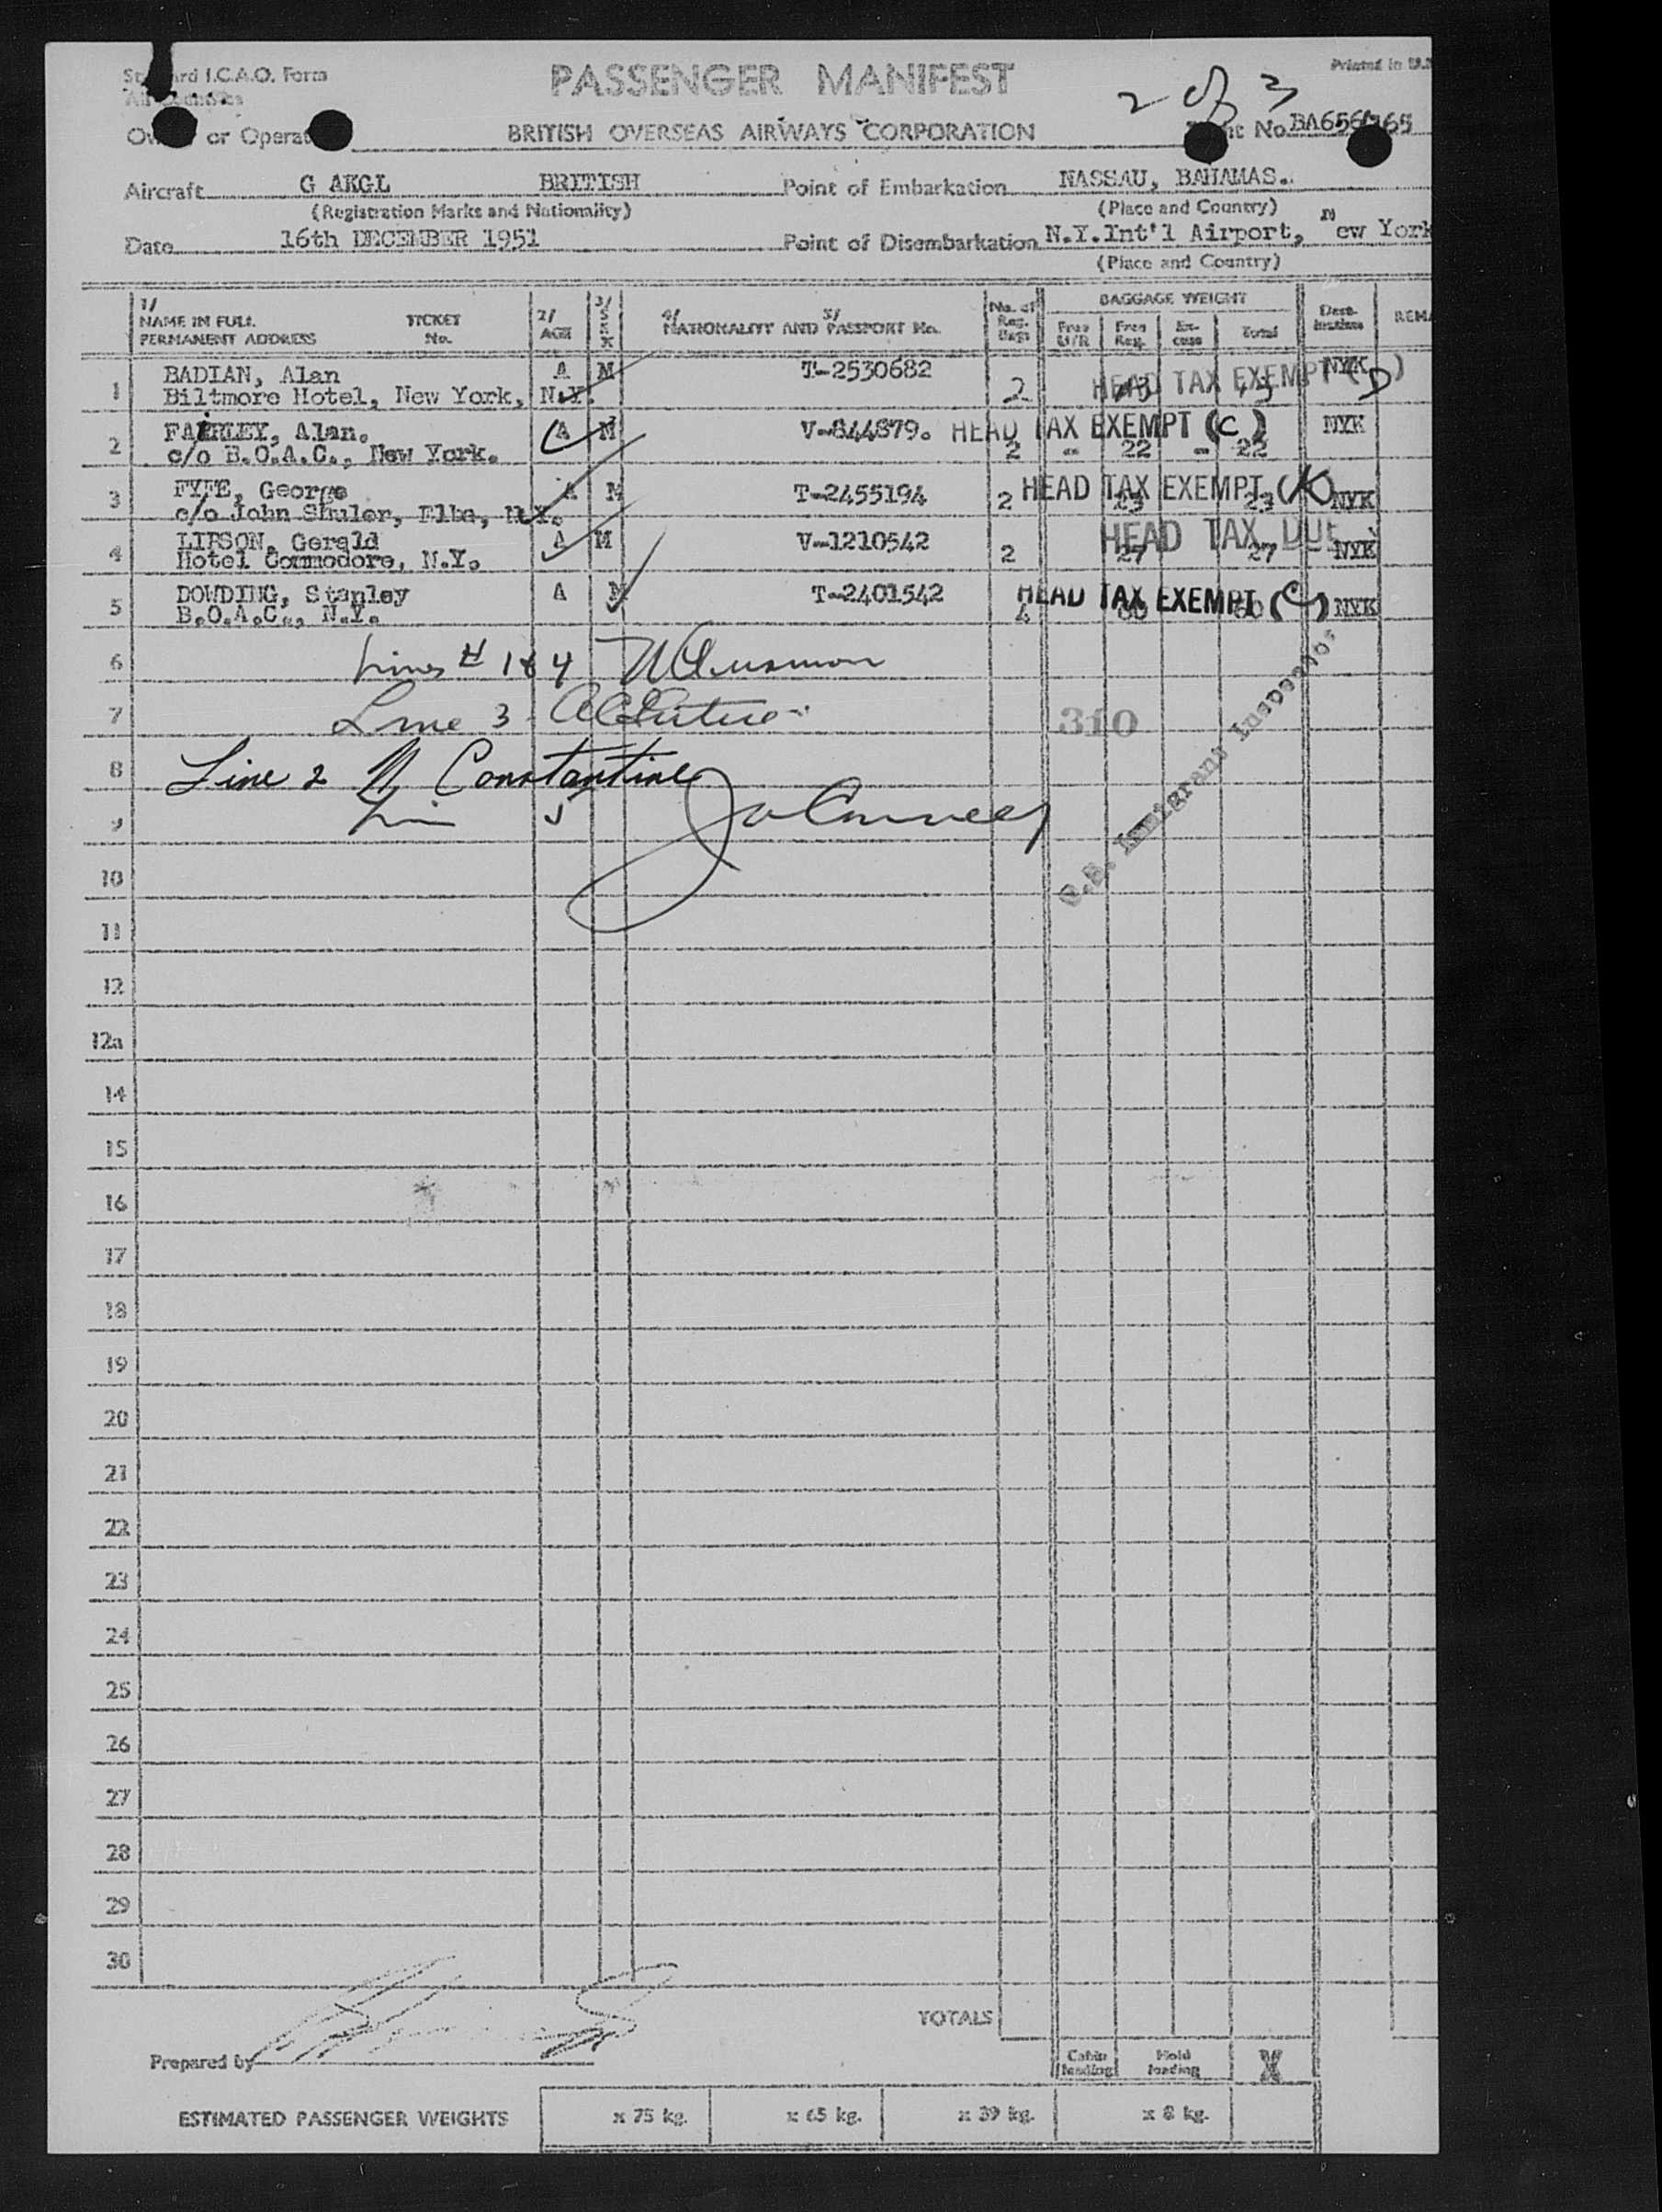 Standard I.C.A.O. Form PASSENGER MANIFEST Printed in U.
2 of 3
Owner or Operator BRITISH OVERSEAS AIRWAYS CORPORATION No. BA656/765
Aircraft G AKGL BRITISH Point of Embarkation NASSAU, BAHAMAS.
(Registration Marks and Nationality) (Place and Country)
Date 16th DECEMBER 1951 Point of Disembarkation N.Y.Int'l Airport, New York
(Place and Country)
1/ NAME IN FULL PERMANENT ADDRESS TICKET No. 2/ AGE 3/ SEX 4/ 5/ NATIONALITY AND PASSPORT No. No. of Reg. Bags BAGGAGE WEIGHT Free Reg. Total Destination REMA
1 BADIAN, Alan A M T-2530682 NYK
Biltmore Hotel, New York, N.Y. 2 HEAD TAX EXEMPT (D)
2 FAIRLEY, Alan. A M V-844879. HEAD TAX EXEMPT (C) NYK
c/o B.O.A.C., New York. 2 - 22 - 22
3 FYFE, George A M T-2455194 2 HEAD TAX EXEMPT (K) 23 23 NYK
c/o John Shuler, Elba, N.Y.
4 LIPSON, Gerald A M V-1210542 HEAD TAX DUE
Hotel Commodore, N.Y. 2 27 27 NYK
5 DOWDING, Stanley A M T-2401542 HEAD TAX EXEMPT (C) NYK
B.O.A.C., N.Y. 4
6 Lines # 1 & 4
7 Line 3 310
8 Line 2 N Constantine
9 5
U.S. Immigrant Inspector
10
11
12
12a
14
15
16
17
18
19
20
21
22
23
24
25
26
27
28
29
30
TOTALS
Prepared by Cabin loading Hold loading X
ESTIMATED PASSENGER WEIGHTS x 75 kg. x 65 kg. x 39 kg. x 8 kg.